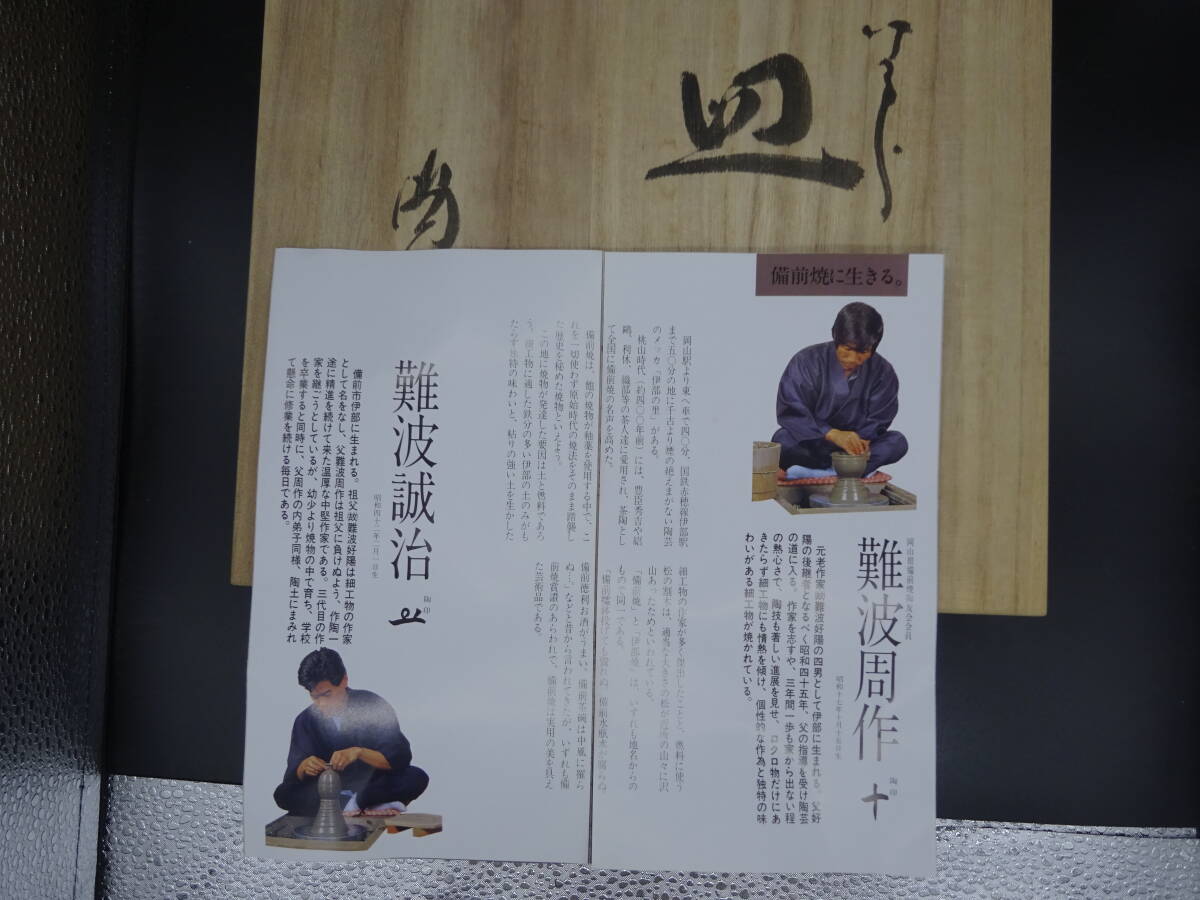 皿
備前焼に生きる。
岡山駅より東へ車で四〇分、国鉄赤穂線伊部駅
まで五〇分の地に千古より煙の絶えまがない陶芸
のメッカ「伊部の里」がある。
桃山時代（約四〇〇年前）には、豊臣秀吉や紹
鷗、利休、織部等の茶人達に愛用され、茶陶とし
て全国に備前焼の名声を高めた。
岡山県備前焼陶友会会員
難波周作
昭和十七年十月十五日生
陶印
元老作家故難波好陽の四男として伊部に生まれる。父好
陽の後継者となるべく昭和四十五年、父の指導を受け陶芸
の道に入る。作家を志すや、三年間一歩も家から出ない程
の熱心さで、陶技も著しい進展を見せ、ロクロ物だけにあ
きたらず細工物にも情熱を傾け、個性的な作為と独特の味
わいがある細工物が焼かれている。
備前焼は、他の焼物が釉薬を使用する中で、こ
れを一切使わず原始時代の焼法をそのまま踏襲し
た歴史を秘めた焼物といえよう。
この地に焼物が発達した要因は土と燃料であろ
う。細工物に適した鉄分の多い伊部の土のみがも
たらす独特の味わいと、粘りの強い土を生かした
細工物の作家が多く傑出したことと、燃料に使う
松の割木は、適当な大きさの松が近郊の山々に沢
山あったためといわれている。
「備前焼」と「伊部焼」は、いずれも地名からの
もので「同」である。
「備前擂鉢投げても割れぬ、備前水瓶水が腐らぬ
備前徳利お酒がうまい、備前茶碗は中風に罹ら
ぬ…」などと昔から言われてきたが、いずれも備
前焼賞讃のあらわれで、備前焼は実用の美を具え
た芸術品である。
難波誠治
昭和四十二年二月一日生
陶印
備前市伊部に生まれる。祖父故難波好陽は細工物の作家
として名をなし、父難波周作は祖父に負けぬよう、作陶一
途に精進を続けて来た温厚な中堅作家である。三代目の作
家を継ごうとしているが、幼少より焼物の中で育ち、学校
を卒業すると同時に、父周作の内弟子同様、陶土にまみれ
て懸命に修業を続ける毎日である。